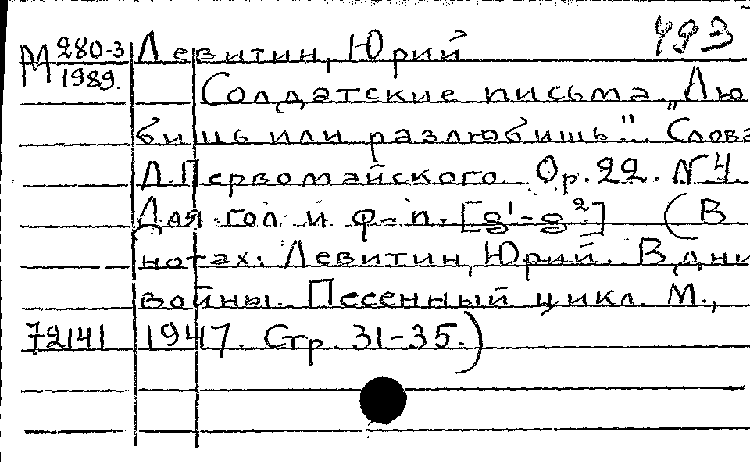 М 280-3 Левитин, Юрий 493
1989.
Солдатские письма „Лю
бишь или разлюбишь". Слова
Л. Первомайского. Ор. 22. N 4.
Для гол. и ф-п. [g¹-g²] (В
нотах: Левитин, Юрий. В дни
войны. Песенный цикл. М.,
72141 1947. Стр. 31-35.)